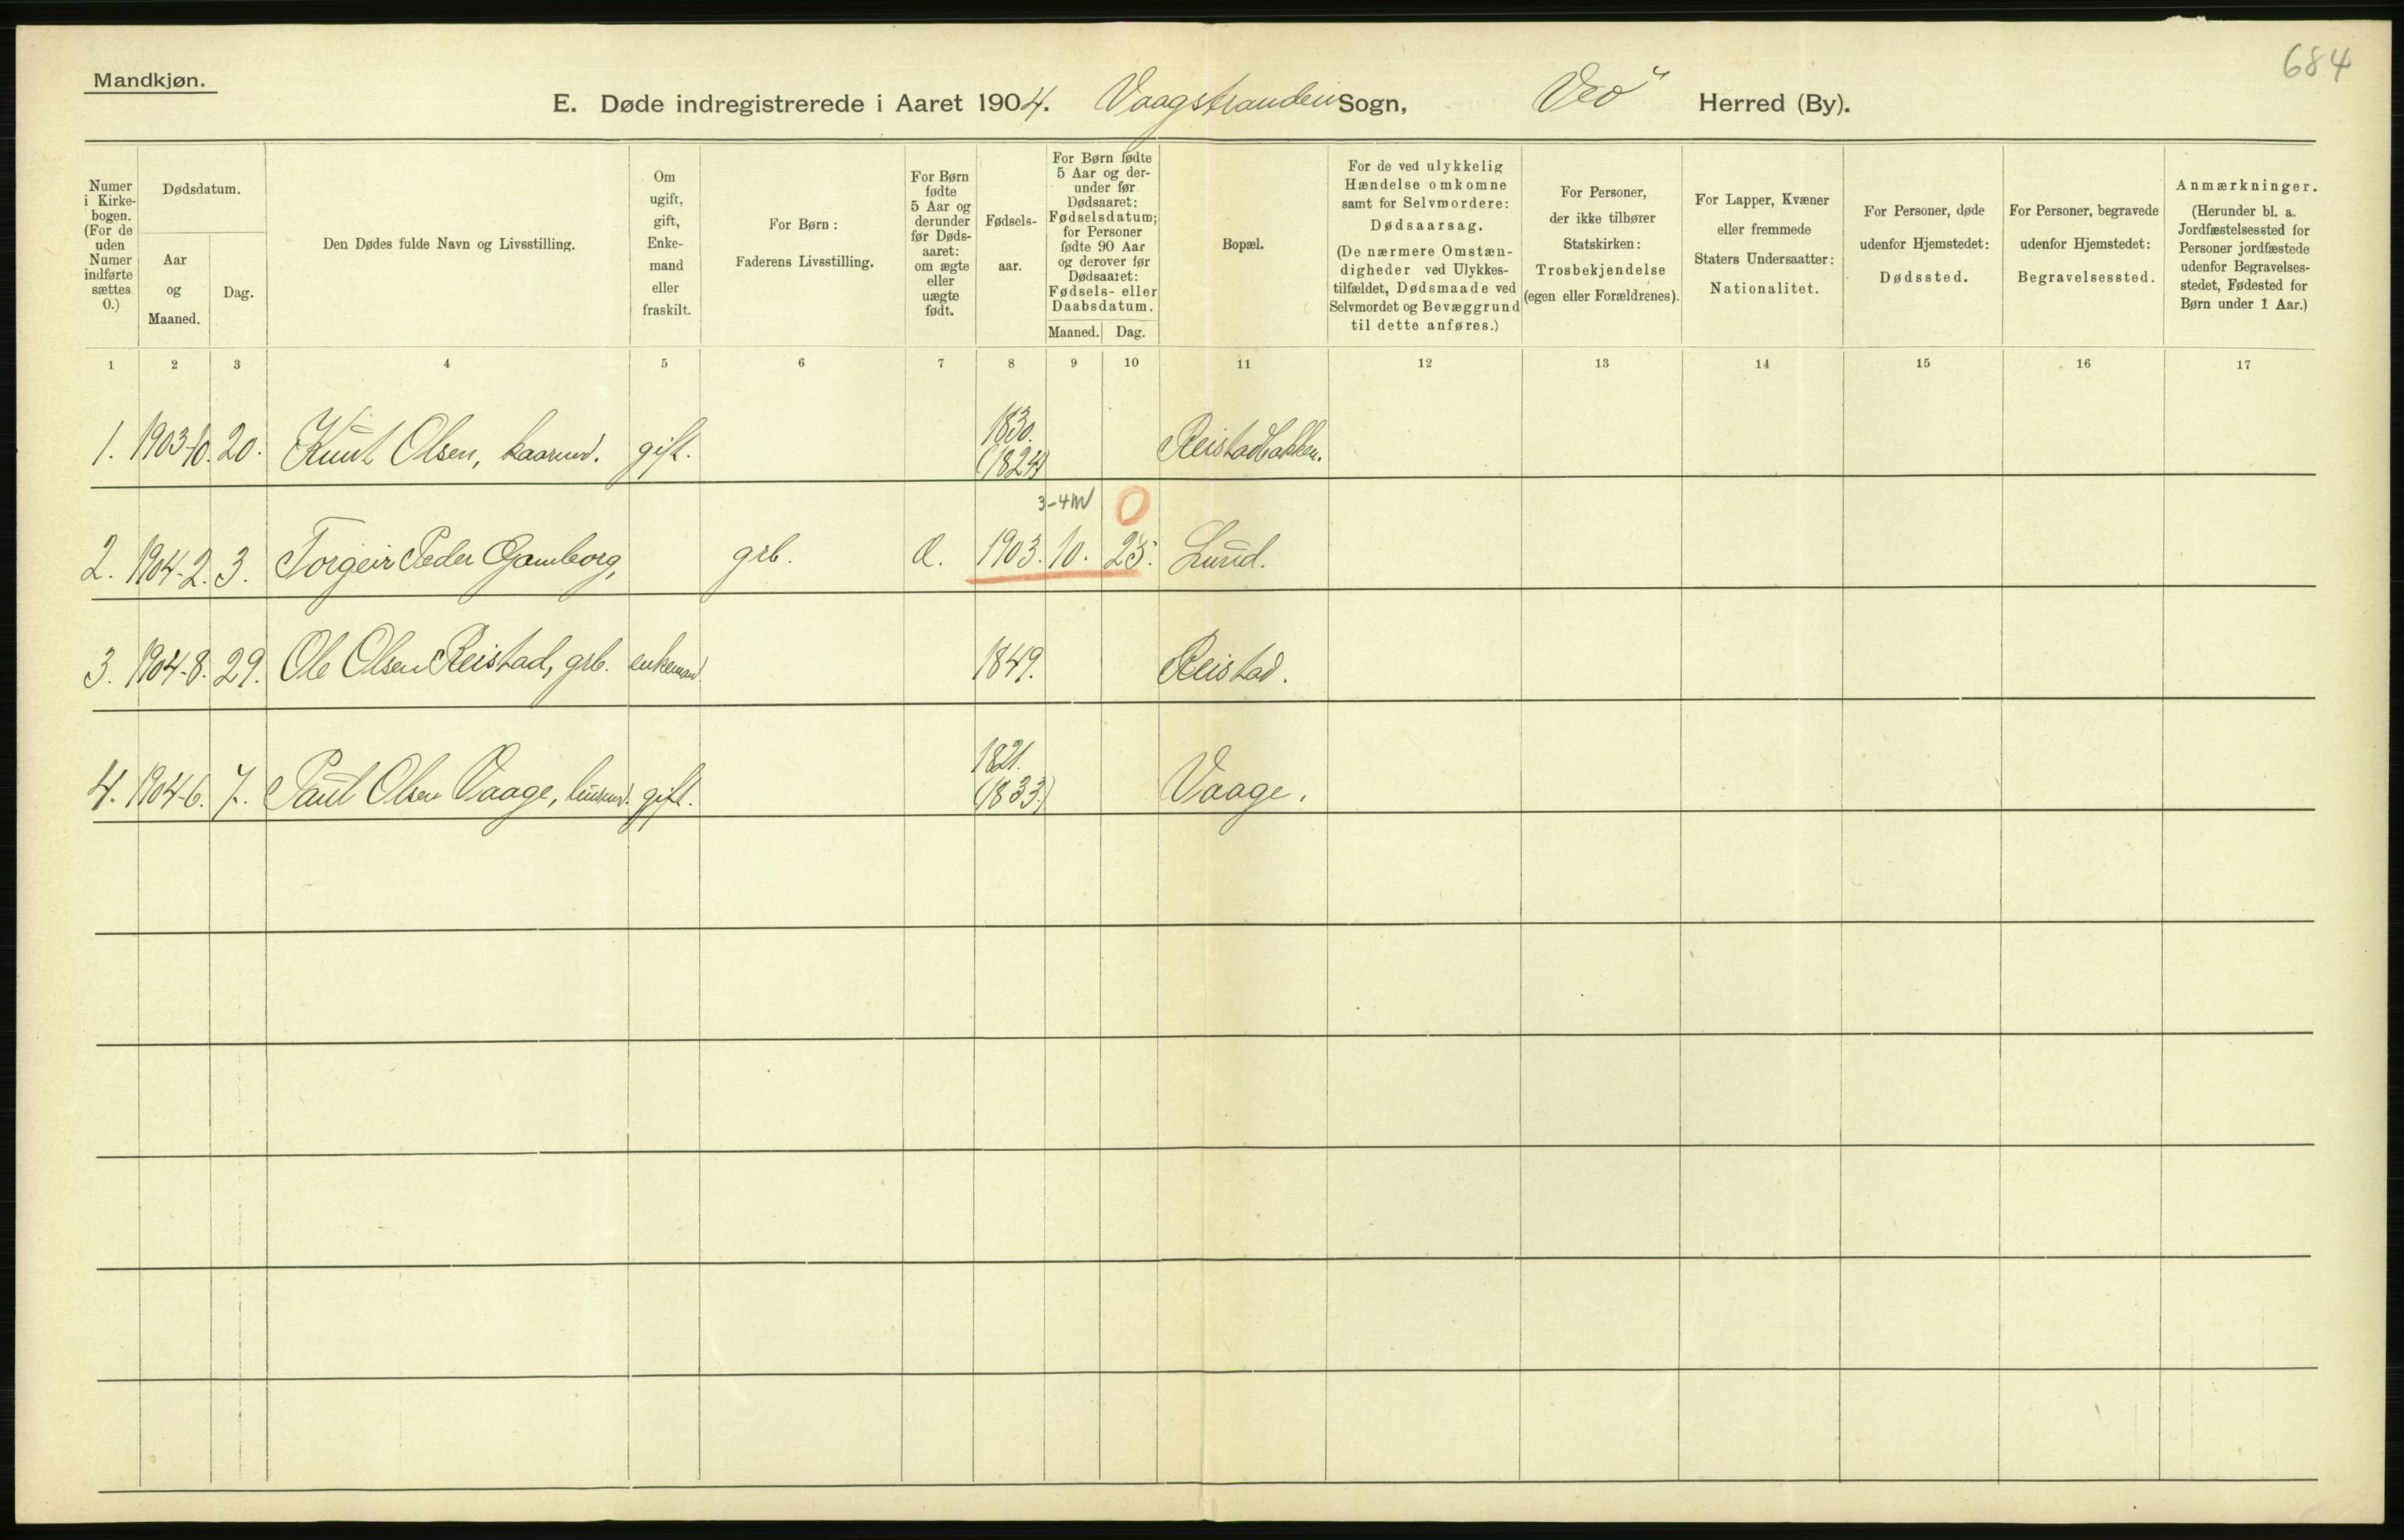 684
Mandkjøn.
E. Døde indregistrerede i Aaret 1904. Vaagstranden Sogn, Veö Herred (By).
Numer i Kirkebogen. (For de uden Numer indførte sættes 0.)
Dødsdatum.
Aar og Maaned.
Dag.
Den Dødes fulde Navn og Livsstilling.
Om ugift, gift, Enkemand eller fraskilt.
For Børn: Faderens Livsstilling.
For Børn fødte 5 Aar og derunder før Dødsaaret: om ægte eller uægte født.
Fødselsaar.
For Børn fødte 5 Aar og derunder før Dødsaaret: Fødselsdatum; for Personer fødte 90 Aar og derover før Dødsaaret: Fødsels- eller Daabsdatum.
Maaned. Dag.
Bopæl.
For de ved ulykkelig Hændelse omkomne samt for Selvmordere: Dødsaarsag. (De nærmere Omstændigheder ved Ulykkestilfældet, Dødsmaade ved Selvmordet og Bevæggrund til dette anføres.)
For Personer, der ikke tilhører Statskirken: Trosbekjendelse (egen eller Forældrenes).
For Lapper, Kvæner eller fremmede Staters Undersaatter: Nationalitet.
For Personer, døde udenfor Hjemstedet: Dødssted.
For Personer, begravede udenfor Hjemstedet: Begravelsessted.
Anmærkninger. (Herunder bl. a. Jordfæstelsessted for Personer jordfæstede udenfor Begravelsesstedet, Fødested for Børn under 1 Aar.)
1 2 3 4 5 6 7 8 9 10 11 12 13 14 15 16 17
1. 1903-10. 20. Knut Olsen, kaarmd. gift. 1830. (1824) Reistadbakken.
3-4M 0
2. 1904-2. 3. Torgeir Peder Gamborg, grb. 1903. 10. 25. Lund.
3. 1904-8. 29. Ole Olsen Reistad, grb. enkemand 1849. Reistad.
4. 1904-6. 7. Paul Olsen Vaage, husmd. gift. 1821. (1833.) Vaage.